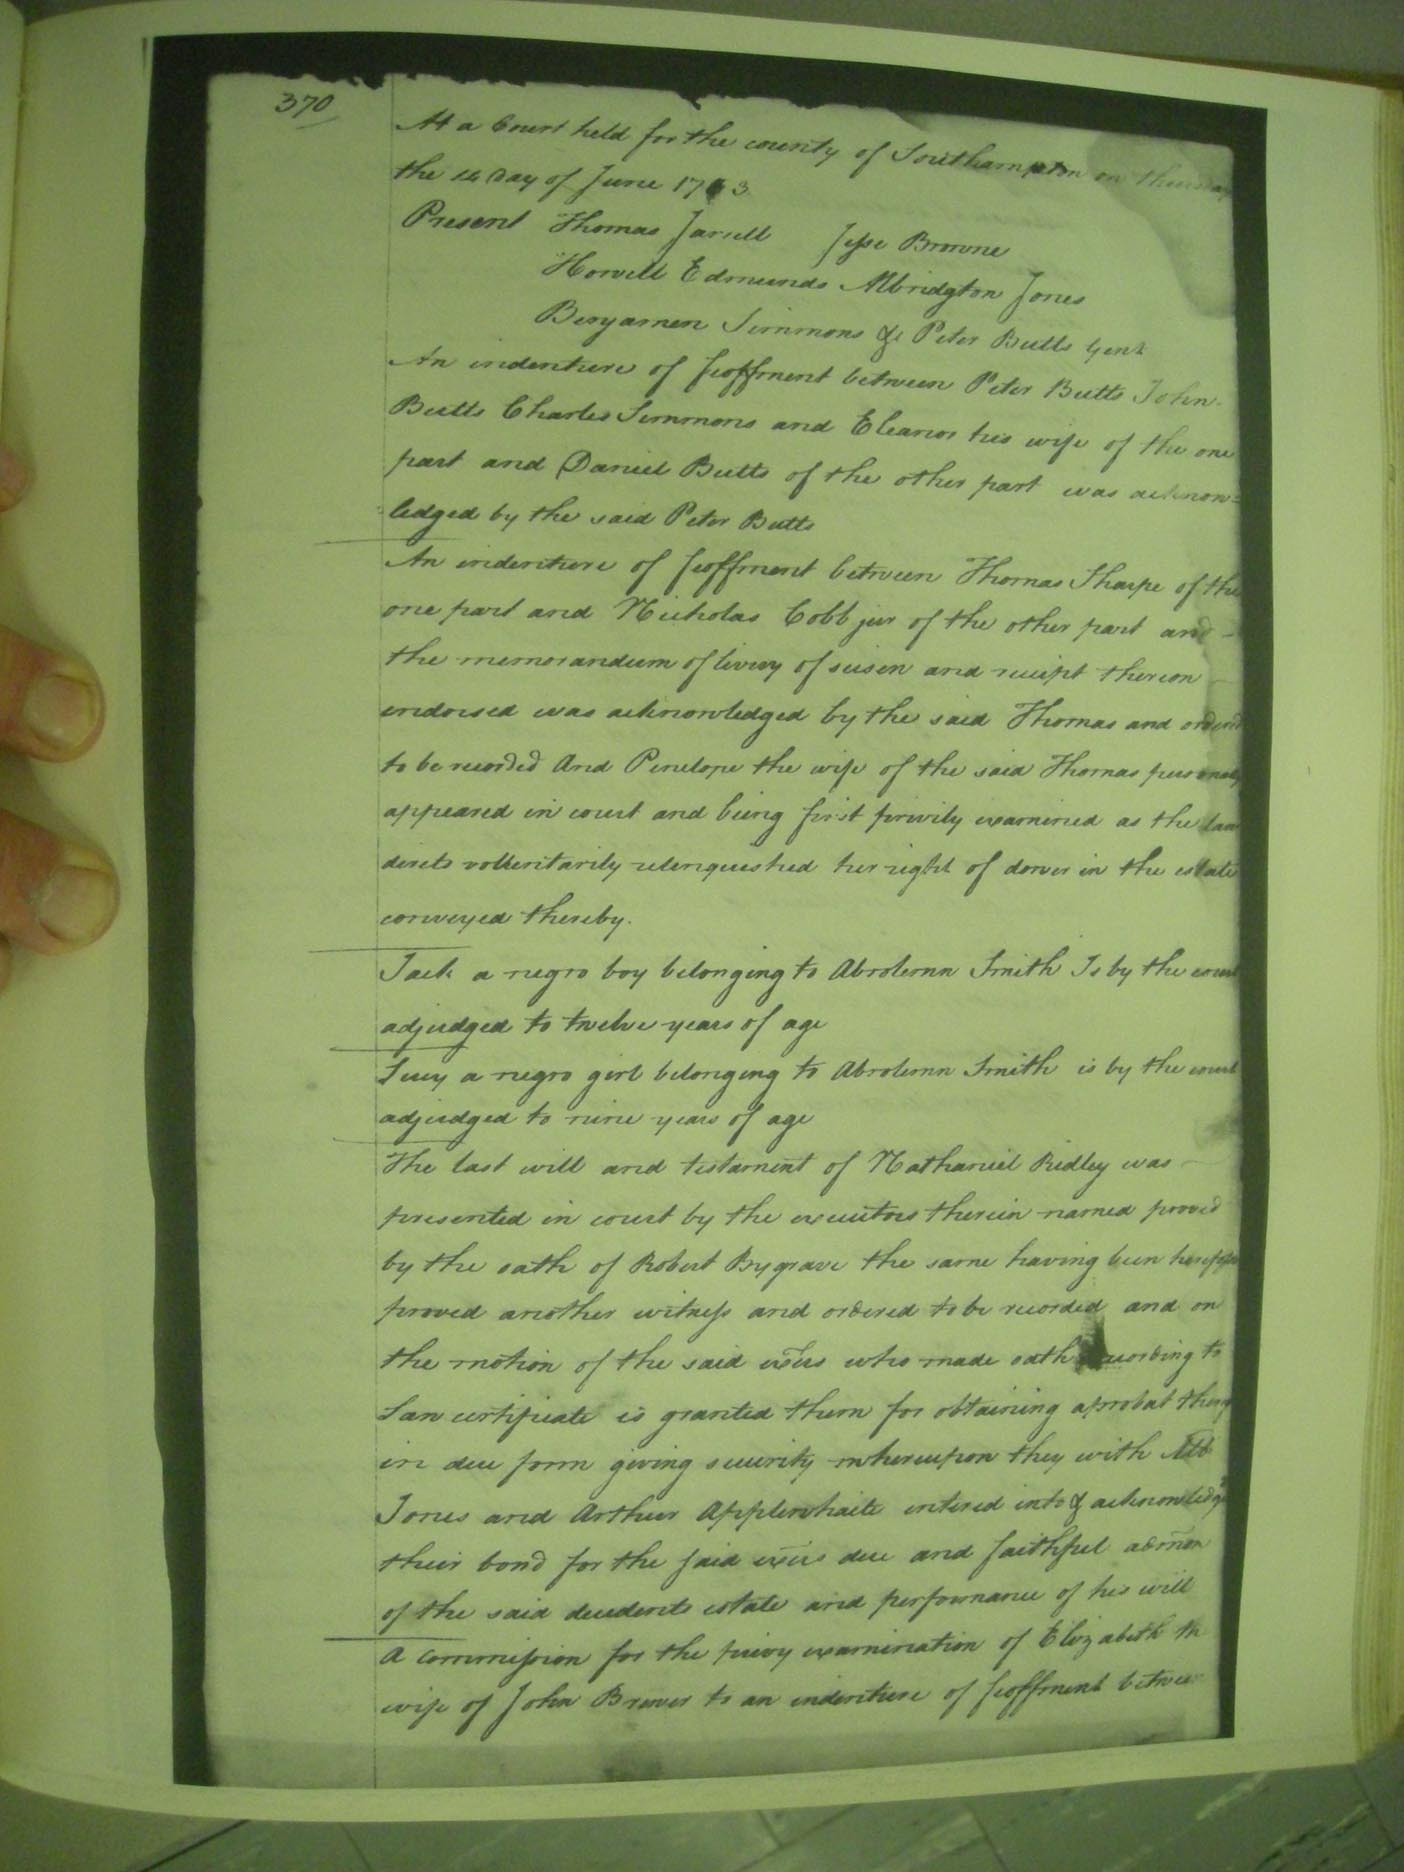 370
At a Court held for the county of Southampton on thursday
the Day of June 17 3
Present Thomas Jarrell Jesse Browne
Howell Edmunds Albridgton Jones
Benjamen Simmons & Peter Butts Gent
An indenture of feoffment between Peter Butts John
Butts Charles Simmons and Eleanor his wife of the one
part and Daniel Butts of the other part was acknow=
ledged by the said Peter Butts
An indenture of feoffment between Thomas Sharpe of the
one part and Nicholas Cobb jur of the other part and
the memorandum of livery of seisen and receipt thereon
endorsed was acknowledged by the said Thomas and ordered
to be recorded And Penelope the wife of the said Thomas personaly
appeared in court and being first privily examined as the law
direts volluntarily relenqueshed her right of dower in the estate
conveyed thereby.
Jack a negro boy belonging to Absolemn Smith Is by the court
adjudged to twelve years of age
Lucy a negro girl belonging to Absolemn Smith is by the court
adjudged to nine years of age
The last will and testament of Nathaniel Ridley was
presented in court by the executors therein named proved
by the oath of Robert Bygrave the same having been
proved another witness and ordered to be recorded and on
the motion of the said exors who made oath according to
Law certificate is granted them for obtaining a probat
in due form giving security whereupon they with Alb
Jones and Arthur Applewhaite entered into & acknowledged
their bond for the said exors due and faithful admon
of the said decedents estate and performance of his will
A commission for the privy examination of Elizabeth the
wife of John Brewer to an indenture of feoffment between